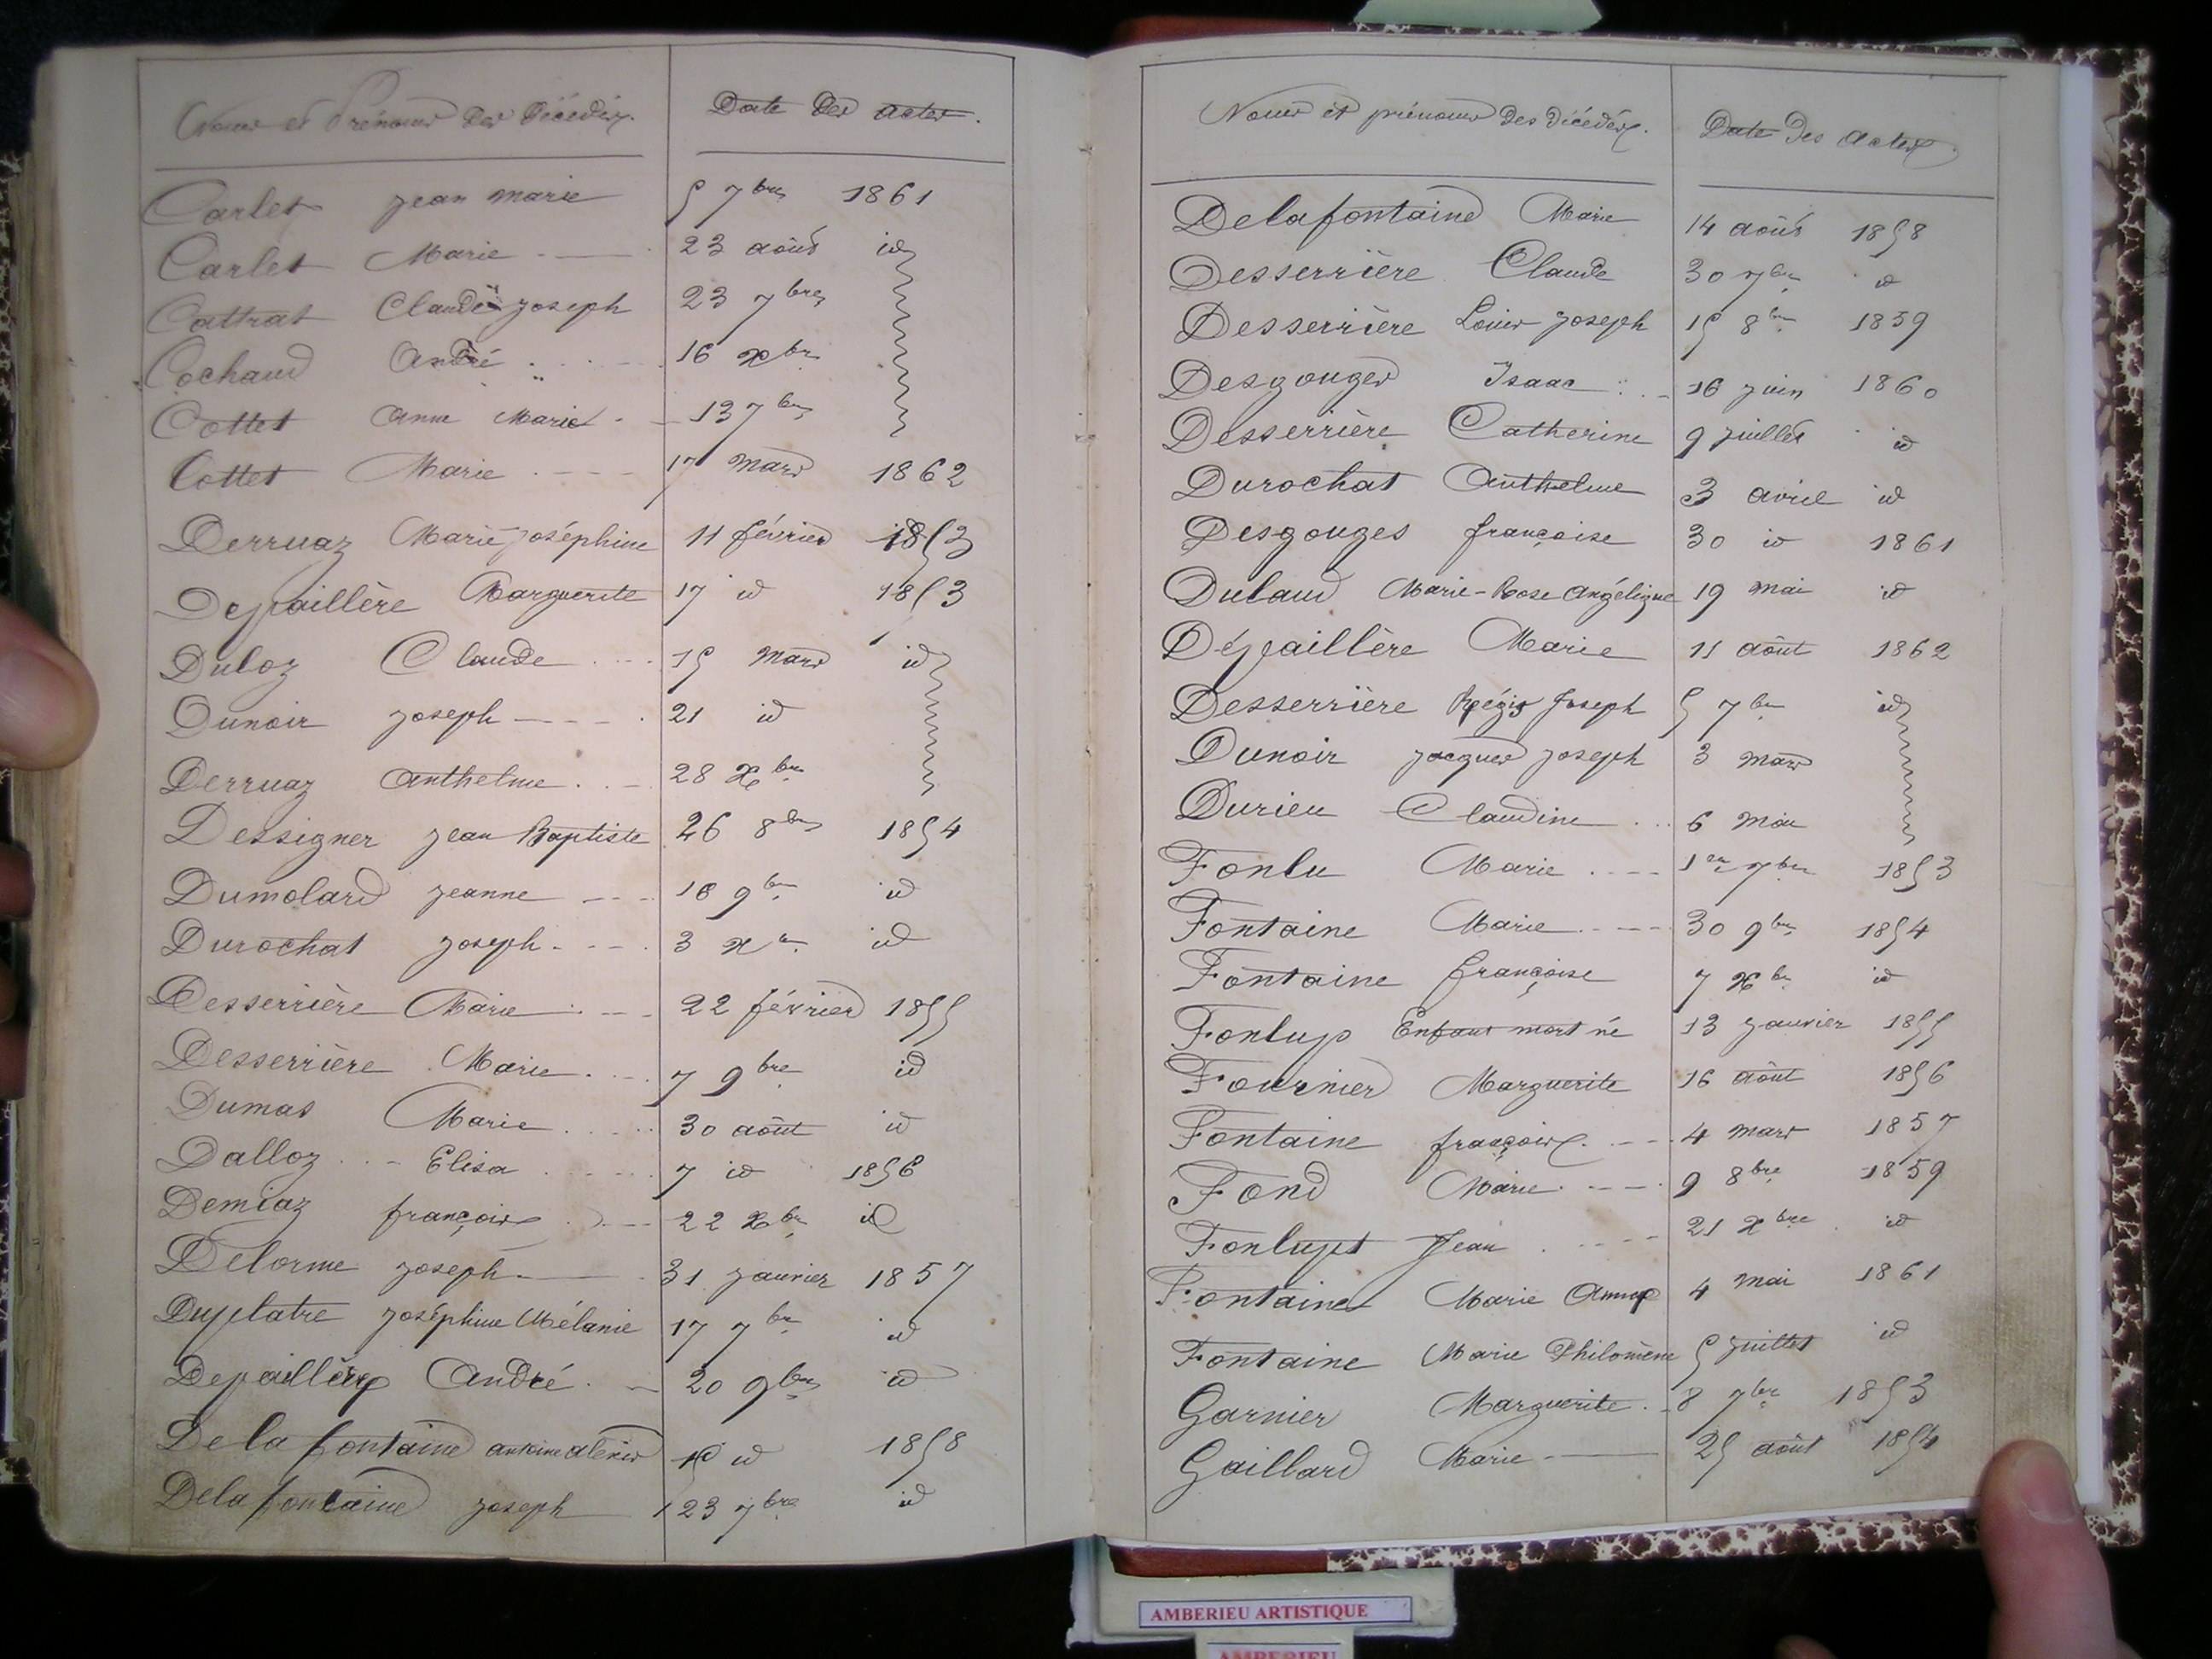 Noms et Prénoms des Décédés. Date des actes.
Carlet Jean Marie 5 7bre 1861
Carlet Marie 23 août id
Cattrat Claude Joseph 23 7bre
Cochaud André 16 xbre
Cottet Anne Marie 13 7bre
Cottet Marie 17 mars 1862
Derruaz Marie Joséphine 11 février 1853
Depaillère Marguerite 17 id 1853
Duloz Claude 15 mars id
Dunoir Joseph 21 id
Derruaz Anthelme 28 xbre
Dessigner Jean Baptiste 26 8bre 1854
Dumolard Jeanne 18 9bre id
Durochat Joseph 3 xbre id
Desserrière Marie 22 février 1855
Desserrière Marie 7 9bre id
Dumas Marie 30 août id
Dalloz Elisa 7 id 1856
Demiaz françois 22 xbre id
Delorme Joseph 31 janvier 1857
Duplatre Joséphine Mélanie 17 7bre id
Depaillère André 20 9bre id
De la fontaine antoine alexis id 1858
Dela fontaine Joseph 23 7bre id
Noms et prénoms des décédés. Date des actes
Delafontaine Marie 14 août 1858
Desserrière Claude 30 7bre id
Desserrière Louis Joseph 15 8bre 1859
Desgouges Isaac 16 juin 1860
Desserrière Catherine 9 juillet id
Durochat Anthelme 3 avril id
Desgouges françoise 30 id 1861
Dulaud Marie-Rose Angélique 19 mai id
Dépaillère Marie 11 août 1862
Desserrière Régis Joseph 5 7bre id
Dunoir Jacques Joseph 3 mars
Durieu Claudine 6 mai
Fonlu Marie 1er 7bre 1853
Fontaine Marie 30 9bre 1854
Fontaine françoise 7 xbre id
Fonlup Enfant mort né 13 janvier 1855
Fournier Marguerite 16 août 1856
Fontaine françois 4 mars 1857
Fond Marie 9 8bre 1859
Fonlupt Jean 21 xbre id
Fontaine Marie Anne 4 mai 1861
Fontaine Marie Philomène 5 juillet id
Garnier Marguerite 8 7bre 1853
Gaillard Marie 25 août 1854
AMBERIEU ARTISTIQUE
AMBERIEU